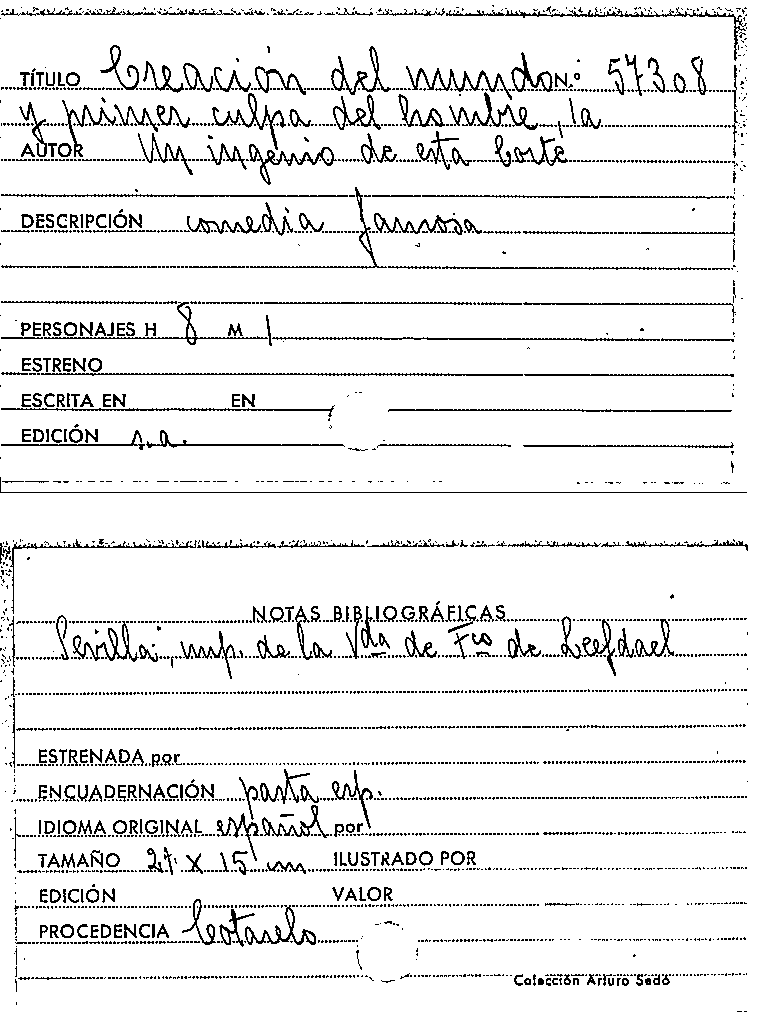 TÍTULO Creación del mundo N.º 57308
y primer culpa del hombre, la
AUTOR Un ingenio de esta Corte
DESCRIPCIÓN comedia famosa
PERSONAJES H 8 M 1
ESTRENO
ESCRITA EN EN
EDICIÓN s.a.
NOTAS BIBLIOGRÁFICAS
Sevilla, imp. de la Vda de Fco de Leefdael
ESTRENADA por
ENCUADERNACIÓN pasta esp.
IDIOMA ORIGINAL español por
TAMAÑO 21 X 15 cm ILUSTRADO POR
EDICIÓN VALOR
PROCEDENCIA Cotarelo
Colección Arturo Sedó